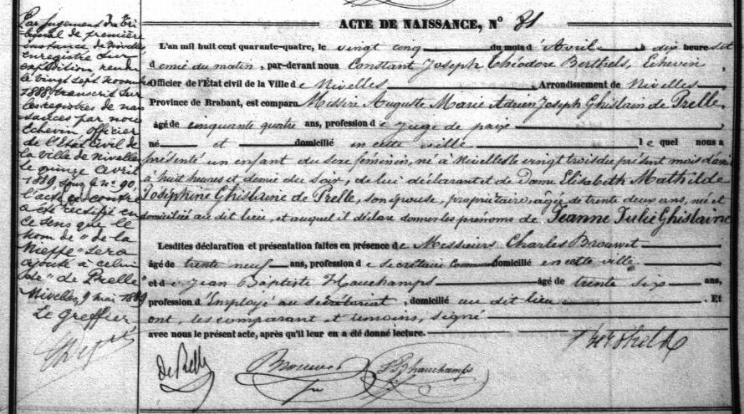 Par jugement du Tri
bunal de première
instance de Nivelles
enregistré sur
expédition rendu
le vingt sept novembre
1888, transcrit sur
les registres de nais
sances par nous
Echevin, officier
de l'Etat Civil de
la ville de Nivelles
le quinze avril
1889, sous le n° 90,
l'acte ci-contre
a été rectifié en
ce sens que le
nom de "de la
Nieppe" sera
ajouté à celui
de "de Prelle"
Nivelles, 9 mai 1889
Le greffier
ACTE DE NAISSANCE, N° 81
L'an mil huit cent quarante-quatre, le vingt cinq du mois d'Avril à six heures
et demie du matin, par-devant nous Constant Joseph Théodore Berthels, Echevin
Officier de l'État civil de la Ville de Nivelles Arrondissement de Nivelles
Province de Brabant, est comparu Messire Auguste Marie Adrien Joseph Ghislain de Prelle
âgé de cinquante quatre ans, profession de juge de paix
né domicilié en cette ville lequel nous a
présenté un enfant du sexe feminin, né à Nivelles le vingt trois du présent mois d'avril
à huit heures et demie du soir, de lui déclarant et de Dame Elisabeth Mathilde
Josephine Ghislaine de Prelle, son épouse, propriétaire, agée de trente deux ans, née et
domiciliée au dit lieu, et auquel il déclare donner les prénoms de Jeanne Julie Ghislaine
Lesdites déclaration et présentation faites en présence de Messieurs Charles Brouwet
âgé de trente neuf ans, profession de secrétaire Comm domicilié en cette ville
et de Jean Baptiste Hauchamps âgé de trente six ans,
profession d'Employé au secrétariat, domicilié au dit lieu Et
ont, les comparant et temoins, signé
avec nous le présent acte, après qu'il leur en a été donné lecture.
de Prelle Brouwet JBhauchamps